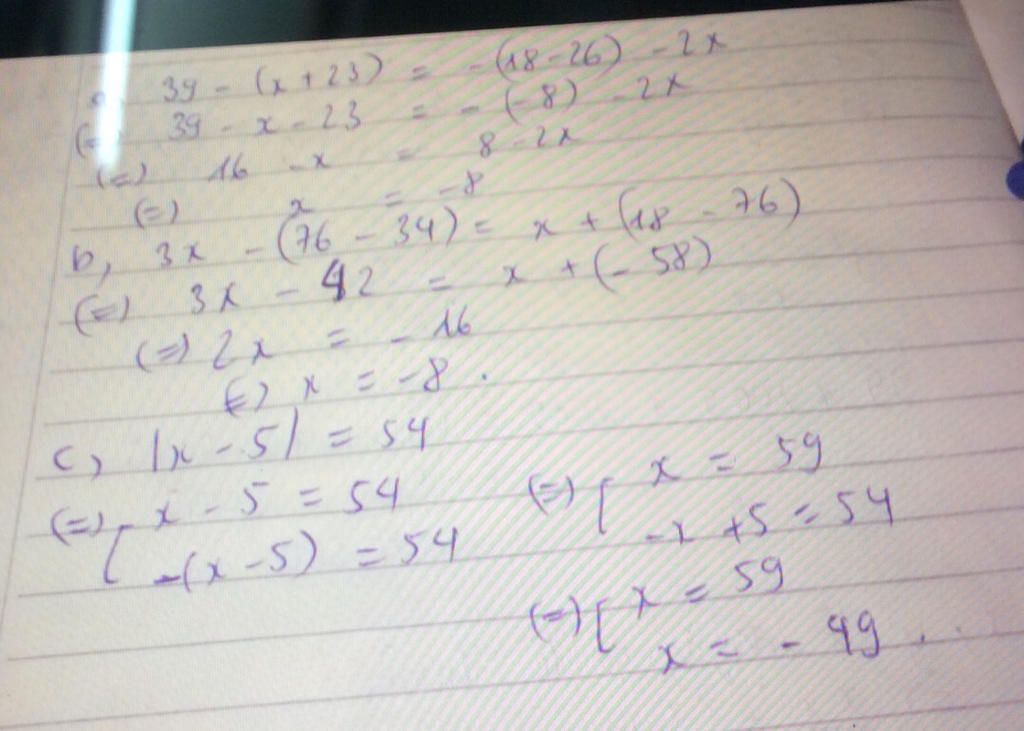 a, 39 - (x + 23) = -(18 - 26) - 2x
(=) 39 - x - 23 = - (-8) - 2x
(=) 16 - x = 8 - 2x
(=) x = -8
b, 3x - (76 - 34) = x + (18 - 76)
(=) 3x - 42 = x + (- 58)
(=) 2x = - 16
(=) x = -8.
c, |x - 5| = 54
(=) [ x - 5 = 54 (=) [ x = 59
-(x - 5) = 54 -x + 5 = 54
(=) [ x = 59
x = - 49.